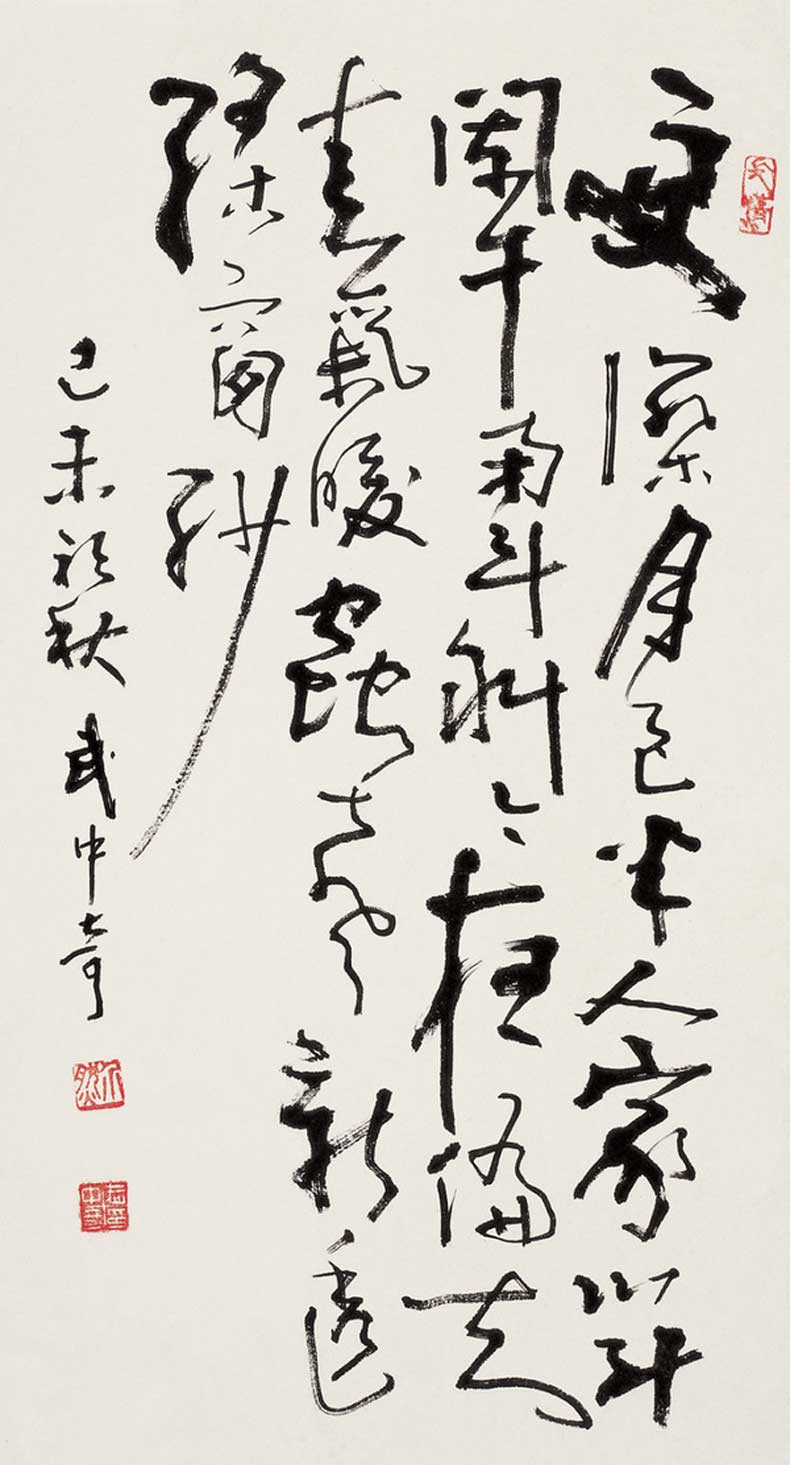 更深月色半人家北斗
闌干南斗斜今夜偏知
春氣暖蟲聲新透
綠窗紗
己未初秋武中奇